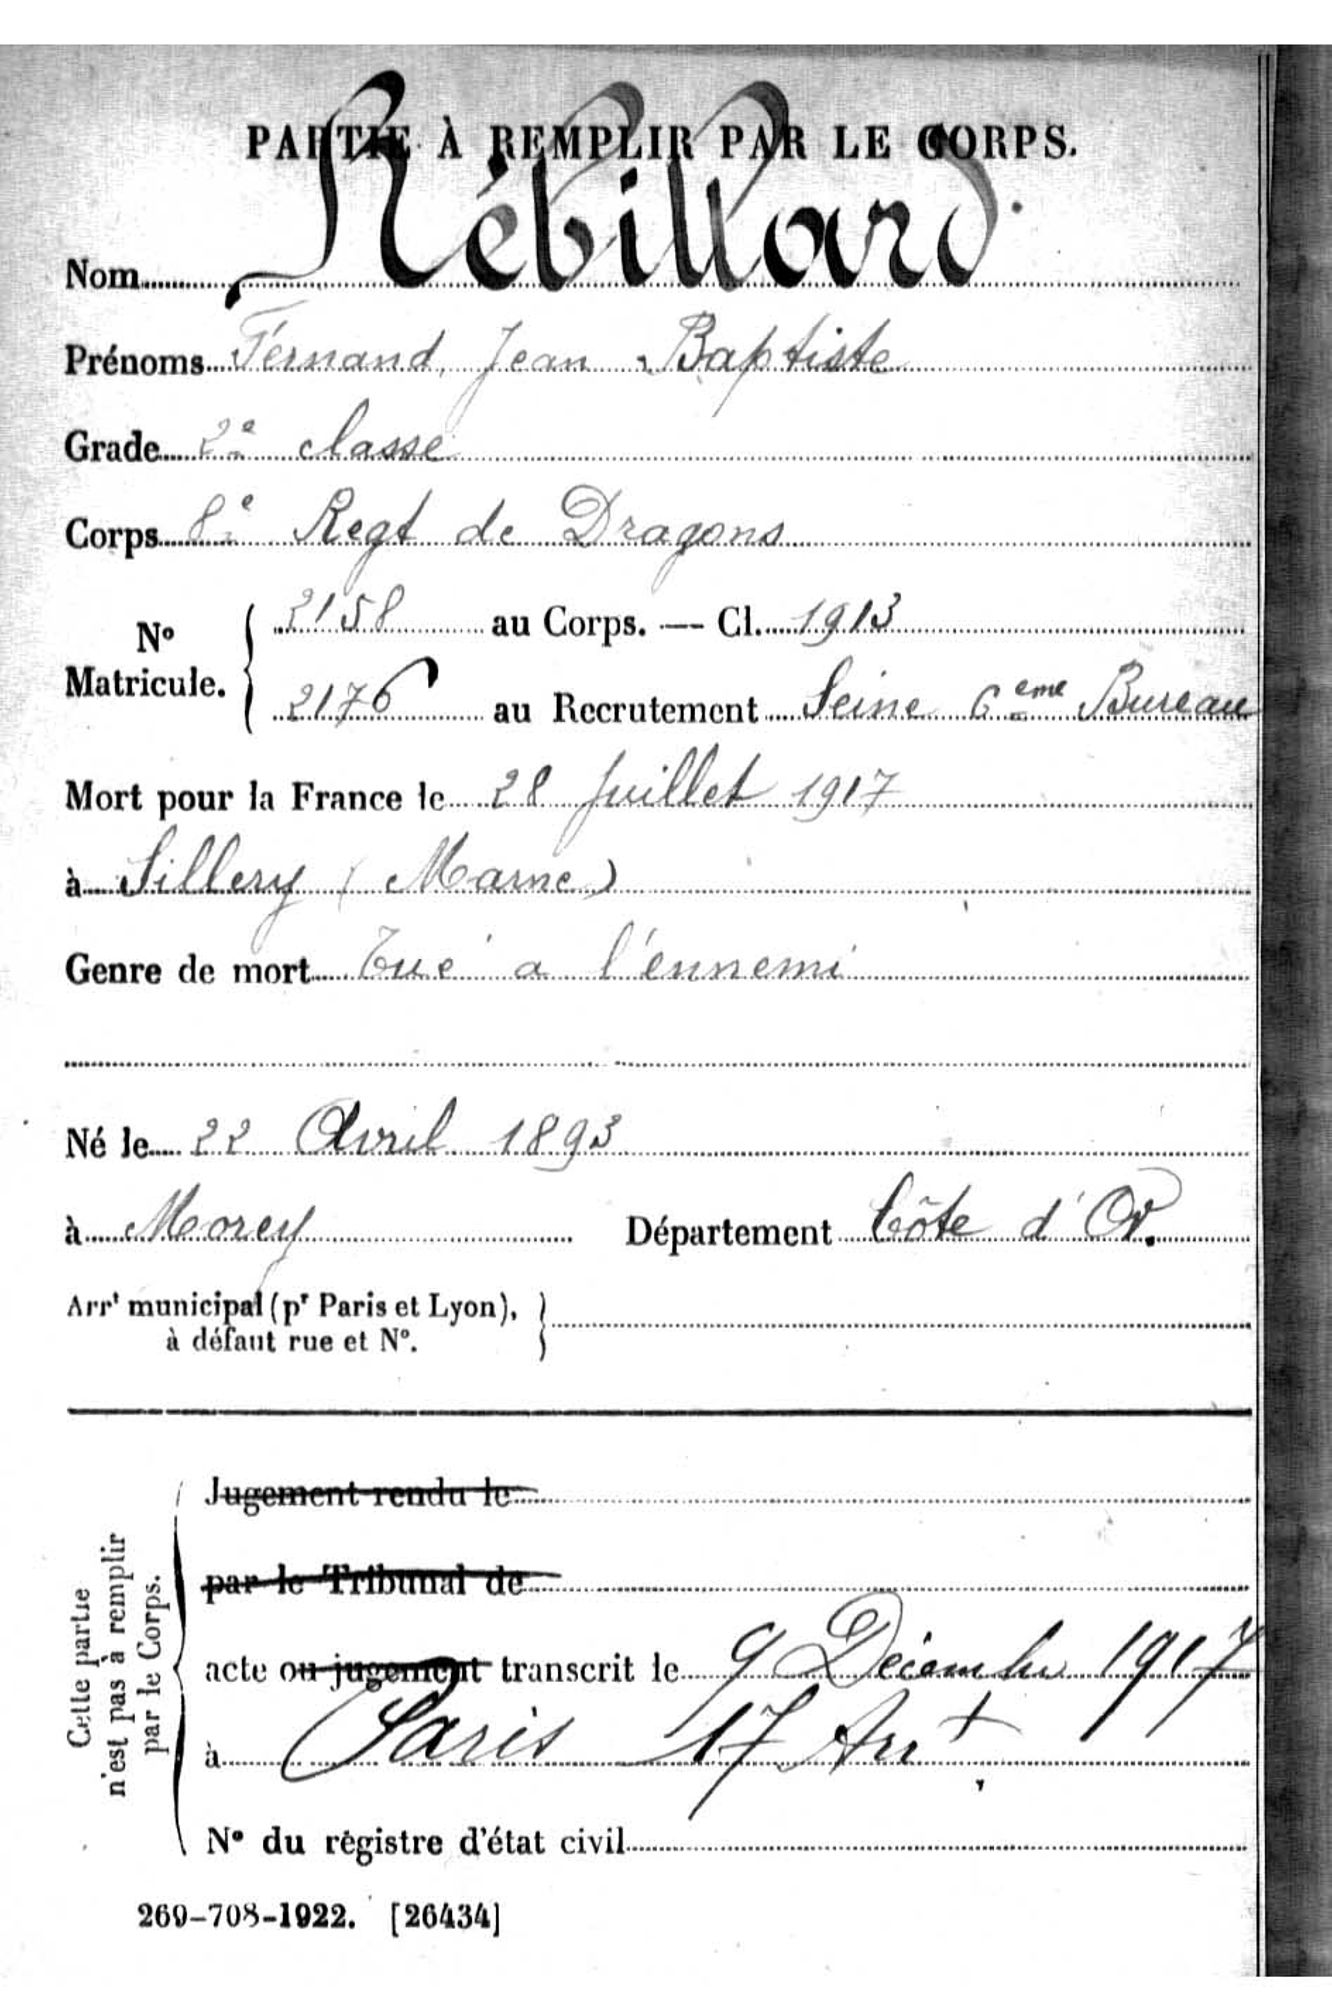 PARTIE À REMPLIR PAR LE CORPS.
Nom Rébillard
Prénoms Fernand, Jean Baptiste
Grade 2e classe
Corps 8e Regt de Dragons
No Matricule. { 2158 au Corps. — Cl. 1913
2176 au Recrutement Seine 6eme Bureau
Mort pour la France le 28 Juillet 1917
à Sillery (Marne)
Genre de mort Tué a l'ennemi
Né le 22 Avril 1893
à Morey Département Côte d'Or.
Arrt municipal (pr Paris et Lyon),
à défaut rue et No. }
Cette partie
n'est pas à remplir
par le Corps.
Jugement rendu le
par le Tribunal de
acte ou jugement transcrit le 9 Décembre 1917
à Paris 17 Arrt
No du registre d'état civil
269-708-1922. [26434]